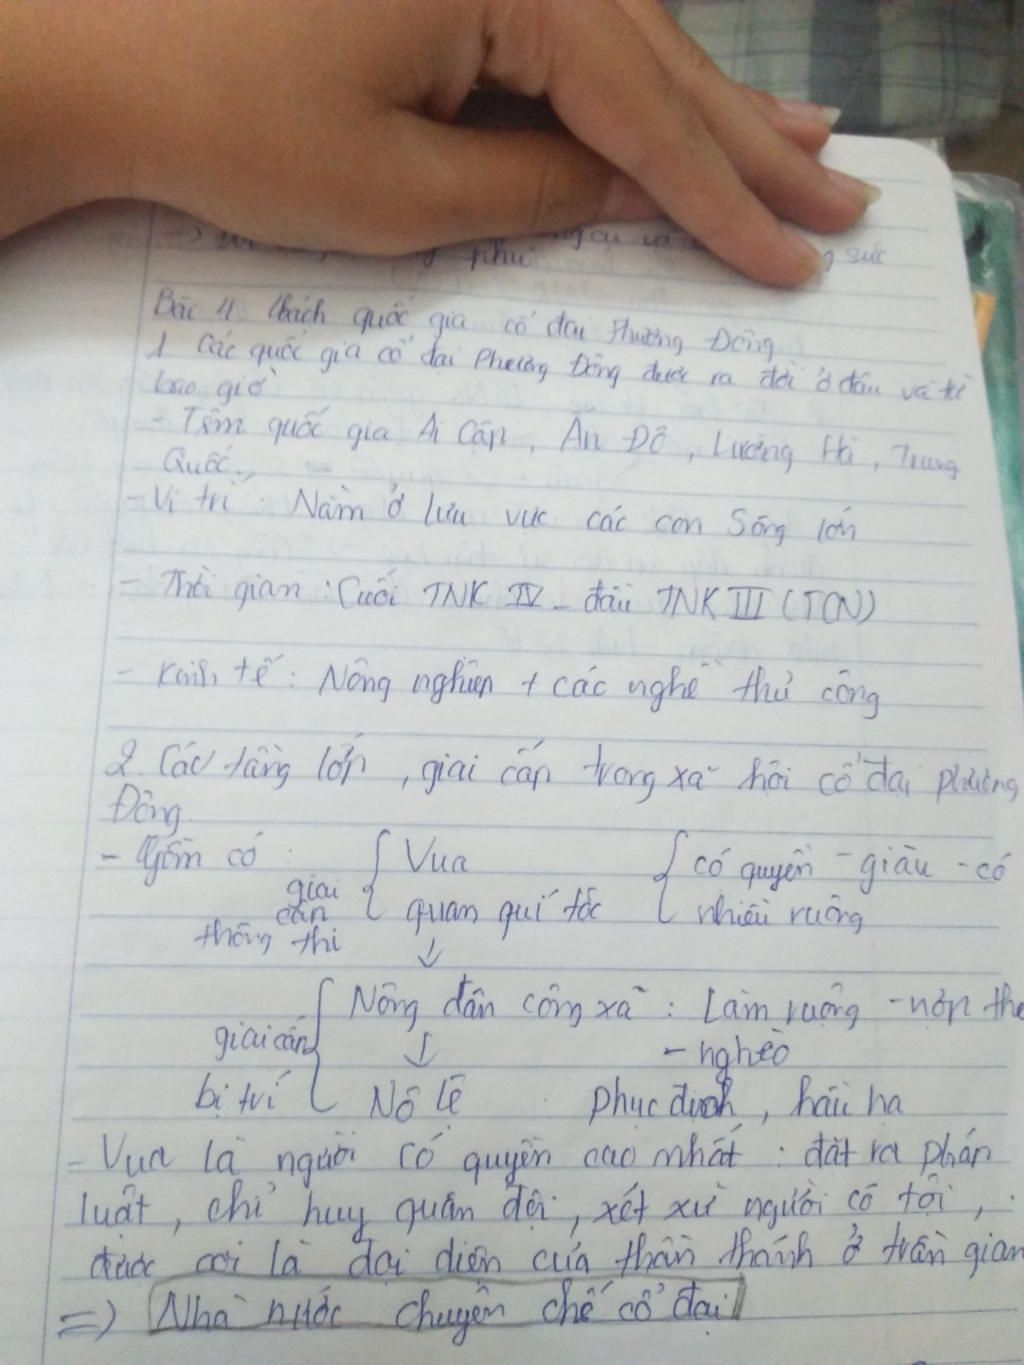 phú sức
Bài 4 Cách quốc gia cổ đại Phương Đông
1 Các quốc gia cổ đại Phương Đông được ra đời ở đâu và từ
bao giờ
- Têm quốc gia Ai Cập, Ấn Độ, Lưỡng Hà, Trung
Quốc.
- Vị trí : Nằm ở lưu vực các con Sông lớn
- Thời gian : Cuối TNK IV - đầu TNK III (TCN)
- Kinh tế : Nông nghiệp + các nghề thủ công
2. Các tầng lớp, giai cấp trong xã hội cổ đại phương
Đông.
- Gồm có : Vua có quyền - giàu - có
giai cấp quan quí tộc nhiều ruộng
thống thi
↓
Nông dân công xã : Làm ruộng - nộp thế
giai cấp ↓ - nghèo
bị trí Nô lệ phục dịch, hầu hạ
- Vua là người có quyền cao nhất : đặt ra pháp
luật, chỉ huy quân đội, xét xử người có tội,
được coi là đại diện của thần thánh ở trần gian
=> Nhà nước chuyên chế cổ đại